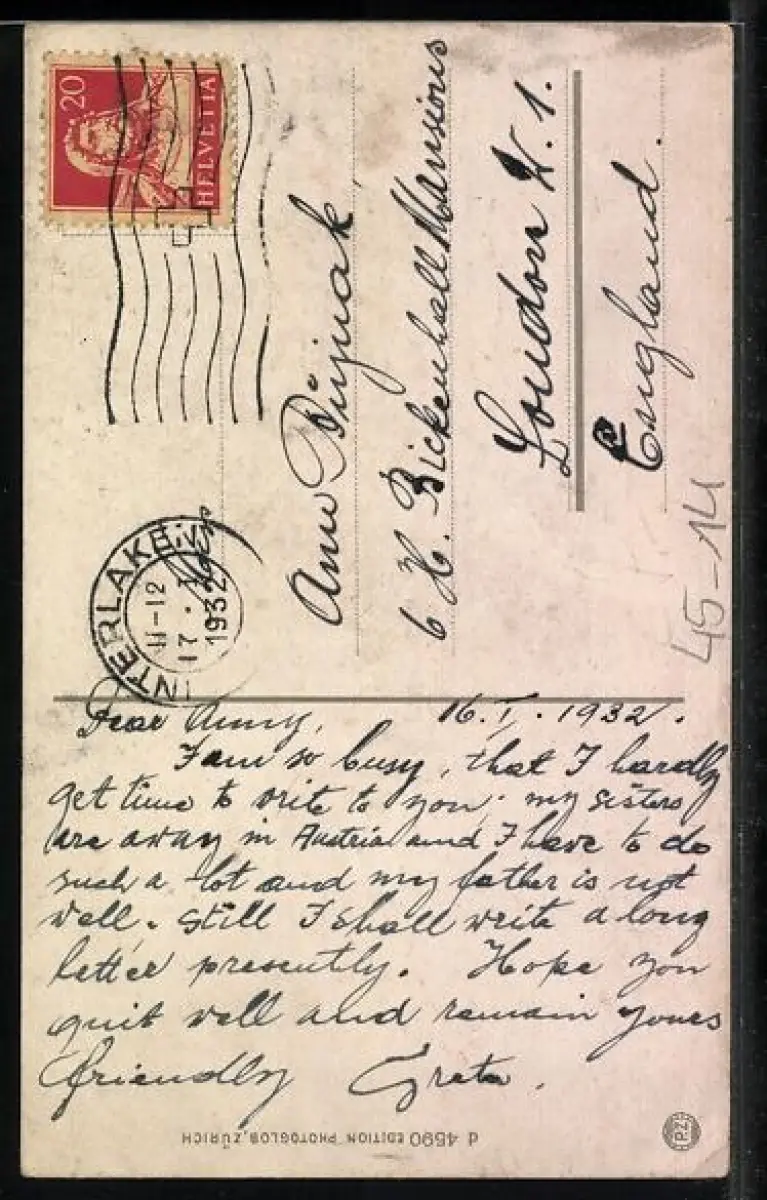 20
HELVETIA
INTERLAKEN
11-12
17. I
1932
Ann
6 H. Bickenhall Mansions
London W. 1.
England.
45-14
16. I. 1932.
Dear Anny,
I am so busy, that I hardly
get time to write to you; my sisters
are away in Austria and I have to do
such a lot and my father is not
well. Still I shall write a long
letter presently. Hope you
quit well and remain yours
friendly Greta.
d 4590 EDITION PHOTOGLOB, ZÜRICH
PZ